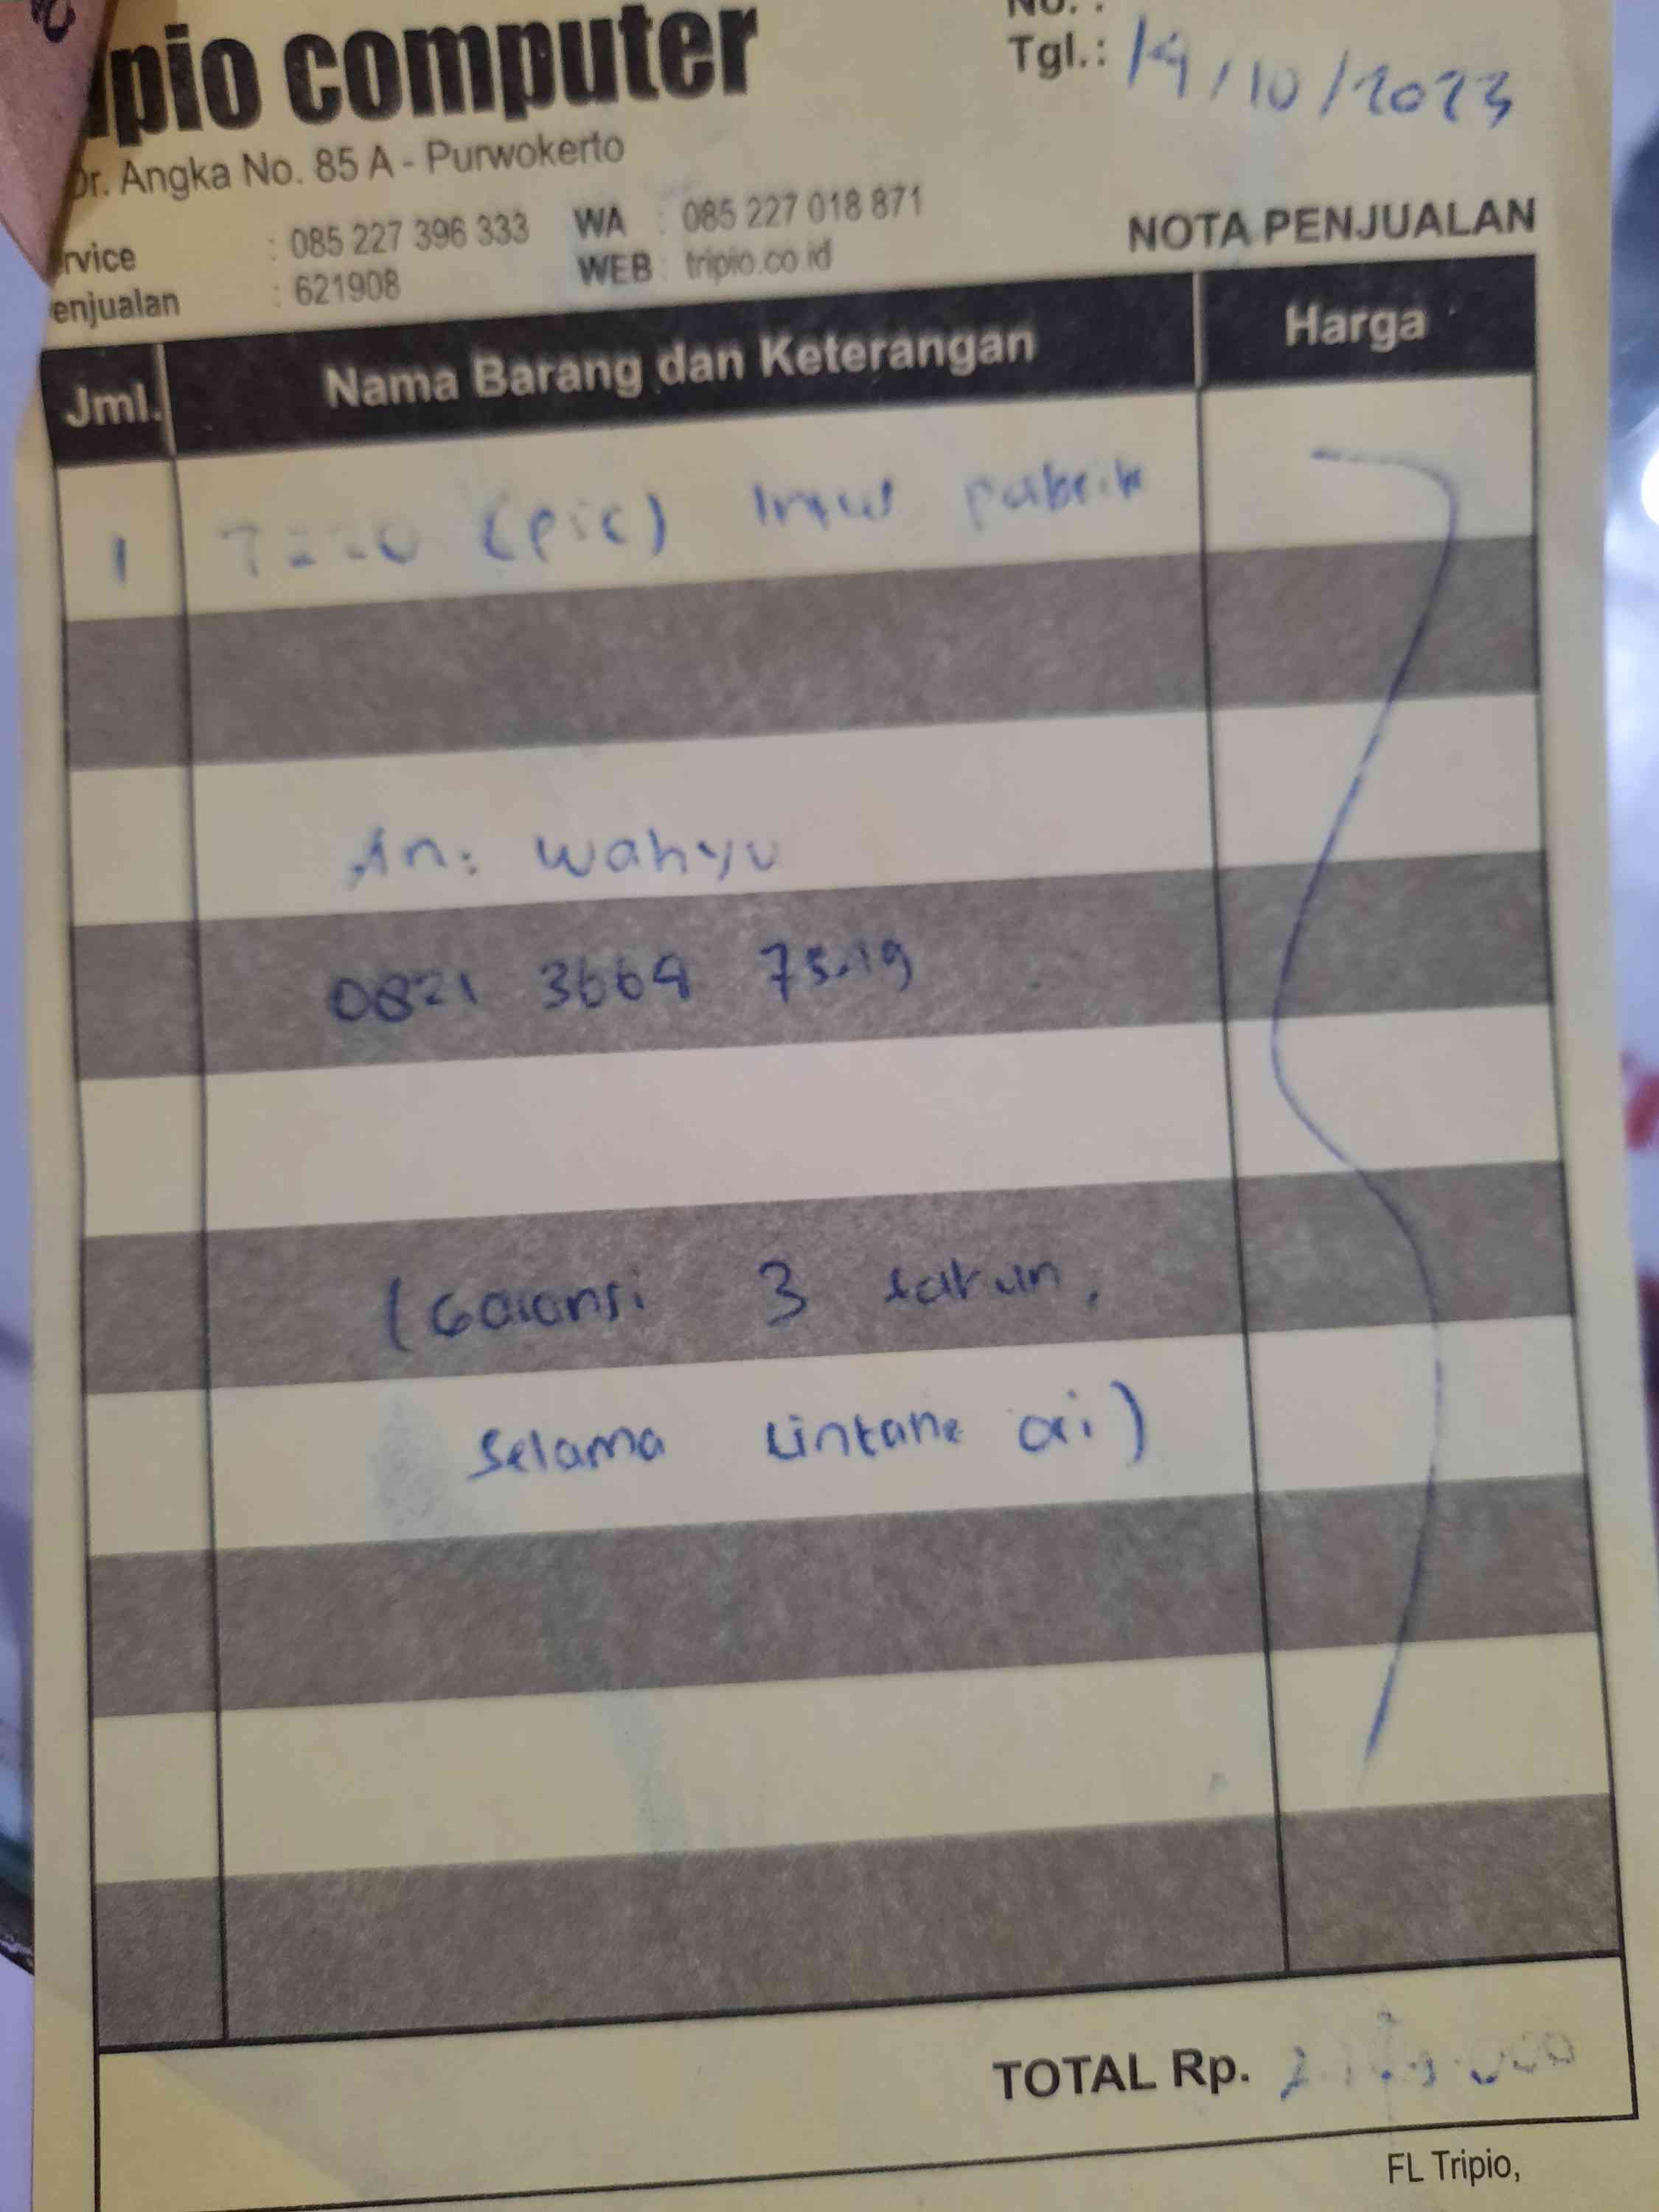 ipio computer
No. :
Tgl.: 14/10/2023
Dr. Angka No. 85 A - Purwokerto
rvice : 085 227 396 333 WA : 085 227 018 871
enjualan : 621908 WEB : tripio.co.id
NOTA PENJUALAN
Jml. Nama Barang dan Keterangan Harga
1 (PSC) pabrik
An: Wahyu
0821 3664
(Garansi 3 tahun,
Selama Lintang ori)
TOTAL Rp.
FL Tripio,